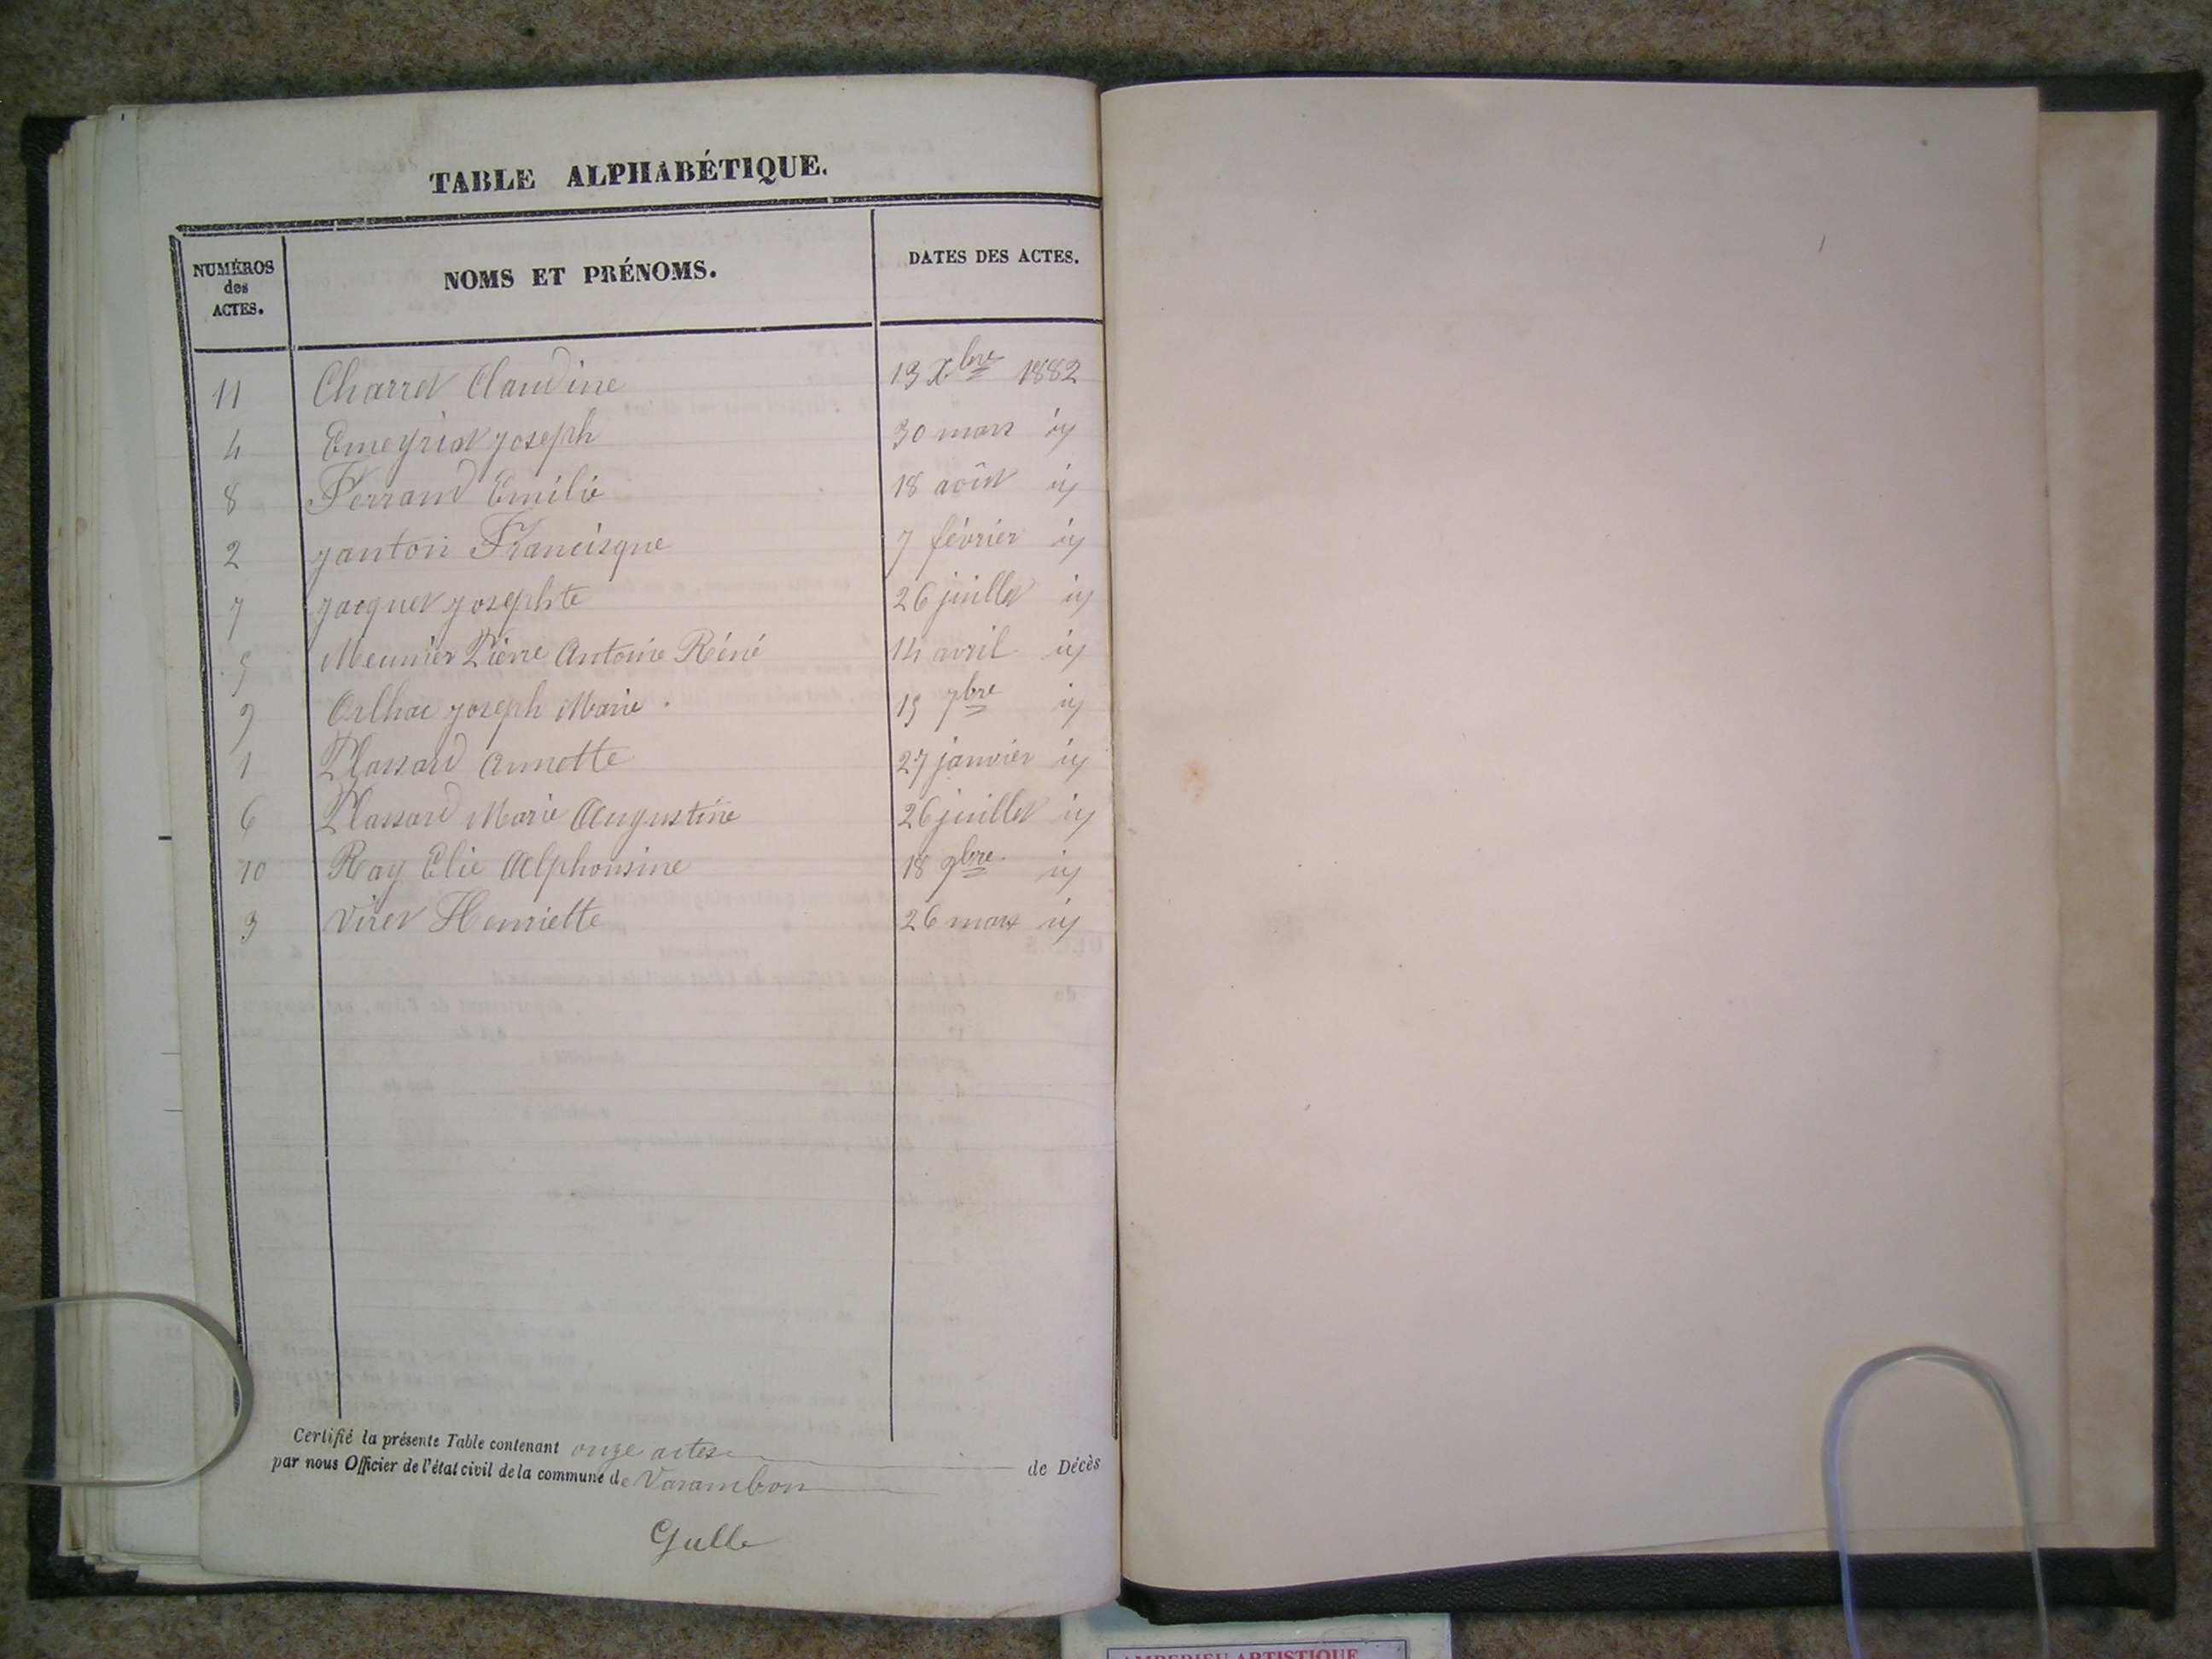 TABLE ALPHABÉTIQUE.
NUMÉROS des ACTES. NOMS ET PRÉNOMS. DATES DES ACTES.
11 Charret Claudine 13 Xbre 1882
4 Emeyriat joseph 30 mars id
8 Ferrand Emilie 18 août id
2 janton Francisque 7 février id
7 jacquet josephte 26 juillet id
5 Meunier Pierre Antoine Réné 14 avril id
9 joseph Marie 15 7bre id
1 Plassard annette 27 janvier id
6 Plassard Marie Augustine 26 juillet id
10 Ray Elie Alphonsine 18 9bre id
3 Viret Henriette 26 mars id
Certifié la présente Table contenant onze actes de Décès
par nous Officier de l'état civil de la commune de Varambon
AMBERIEU ARTISTIQUE